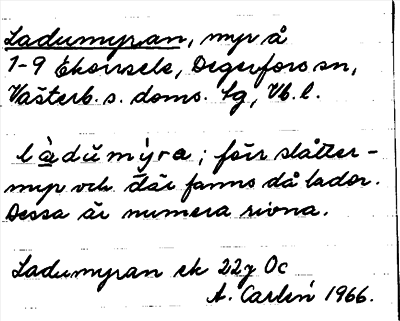 Ladumyran, myr å
1-9 Ekorrsele, Degerfors sn,
Västerb. s. doms. lg, Vb. l.
làdŭmýra; förr slåtter-
myr och där fanns då lador.
Dessa är numera rivna.
Ladumyran ek 22g Oc
A. Carlén 1966.